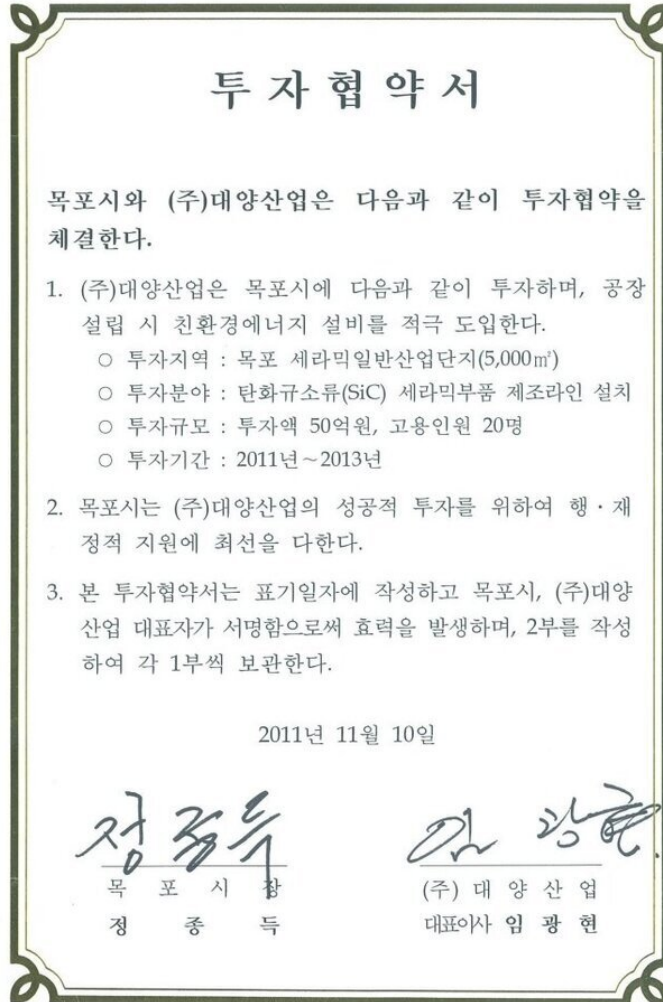 투 자 협 약 서
목포시와 (주)대양산업은 다음과 같이 투자협약을
체결한다.
1. (주)대양산업은 목포시에 다음과 같이 투자하며, 공장
설립 시 친환경에너지 설비를 적극 도입한다.
○ 투자지역 : 목포 세라믹일반산업단지(5,000㎡)
○ 투자분야 : 탄화규소류(SiC) 세라믹부품 제조라인 설치
○ 투자규모 : 투자액 50억원, 고용인원 20명
○ 투자기간 : 2011년～2013년
2. 목포시는 (주)대양산업의 성공적 투자를 위하여 행·재
정적 지원에 최선을 다한다.
3. 본 투자협약서는 표기일자에 작성하고 목포시, (주)대양
산업 대표자가 서명함으로써 효력을 발생하며, 2부를 작성
하여 각 1부씩 보관한다.
2011년 11월 10일
정종득
임 광현
목 포 시 장
(주) 대 양 산 업
정 종 득
대표이사 임 광 현